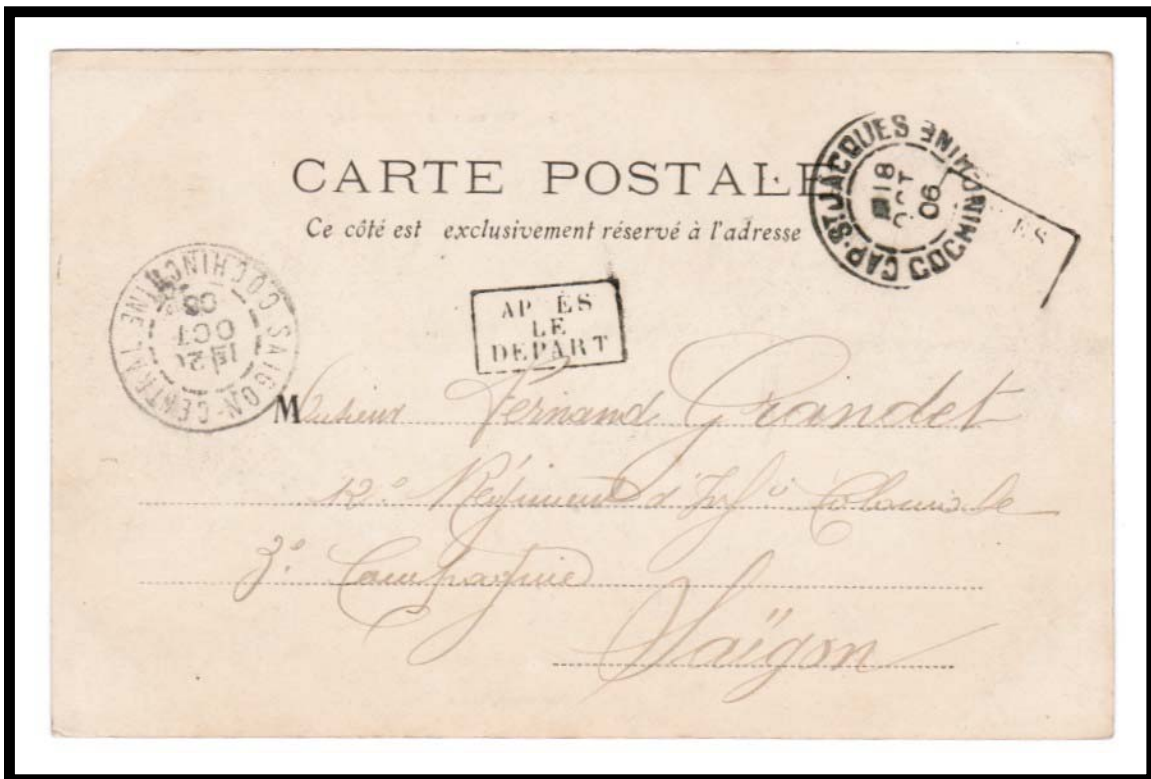 CARTE POSTALE
Ce côté est exclusivement réservé à l'adresse
CAP-ST JACQUES COCHINCHINE
18
OCT
06
ES
SAIGON-CENTRAL COCHINCHINE
OCT
06
AP ÈS
LE
DEPART
Monsieur Fernand Grandet
12e Régiment d'Infie Coloniale
3e Compagnie
Saïgon